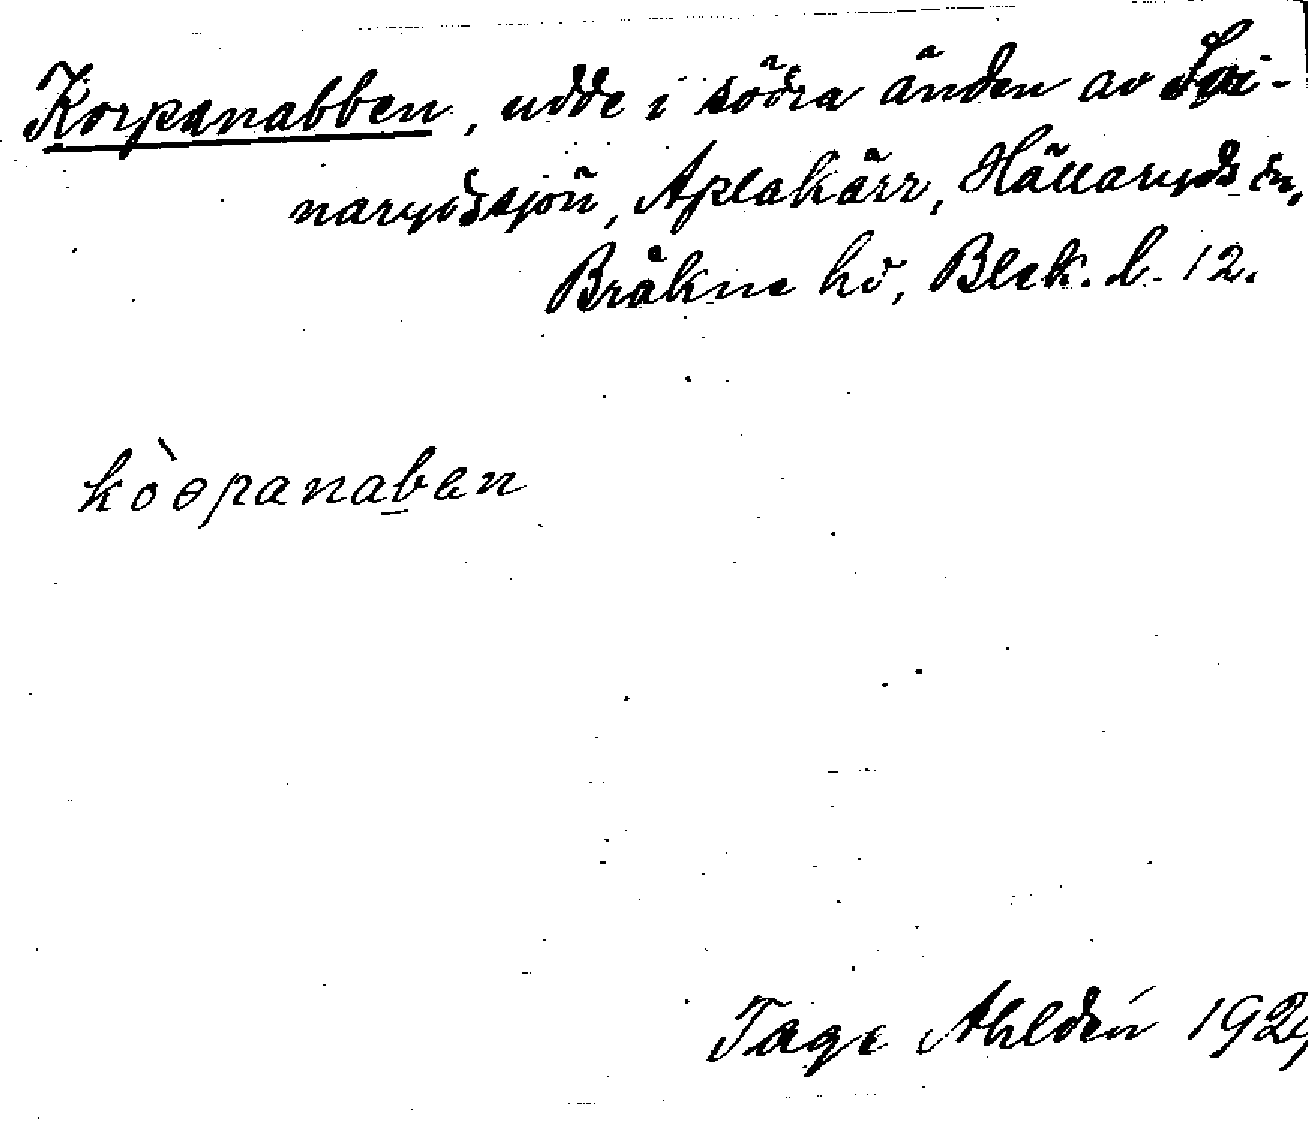 Korpanabben, udde i södra änden av Sai-
narydssjön, Aplakärr, Hällaryds sn,
Bräkne hd, Blek. l. 12.
kòɵpanaben
Tage Ahldén 1929